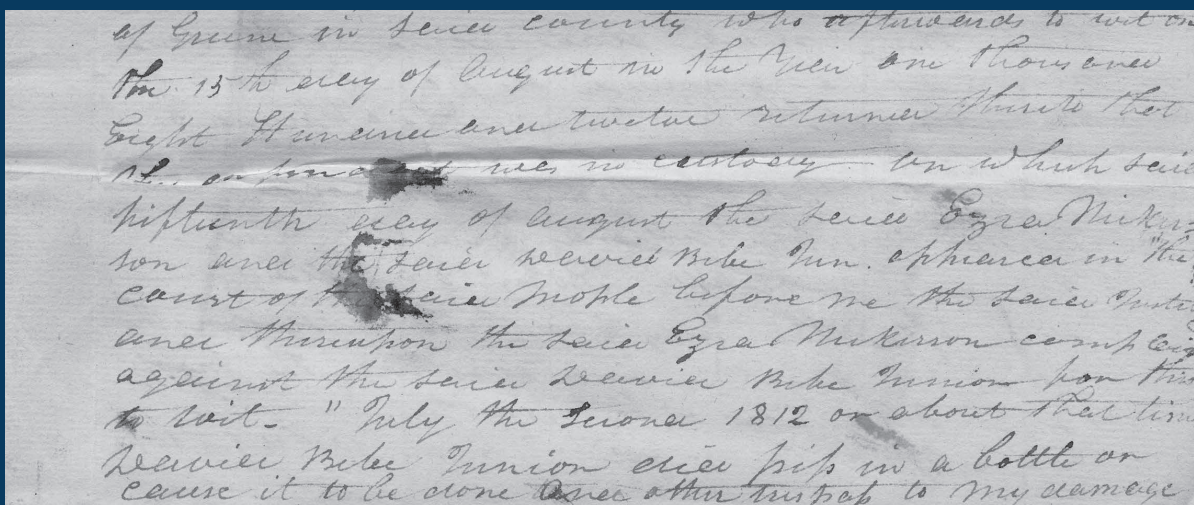 of Greene in said county who afterwards to wit on
the 15th day of August in the Year one thousand
Eight Hundred and twelve returned thereto that
the defendant was in custody on which said
fifteenth day of August the said Ezra Nicker-
son and the said David Bebe Jun. appeared in "the
court of the said People before me the said Justi
and thereupon the said Ezra Nickerson complain
against the said David Bebe Junior for this
to wit- " July the second 1812 or about that time
David Bebe Junior did piss in a bottle or
cause it to be done and other trespass to my damage